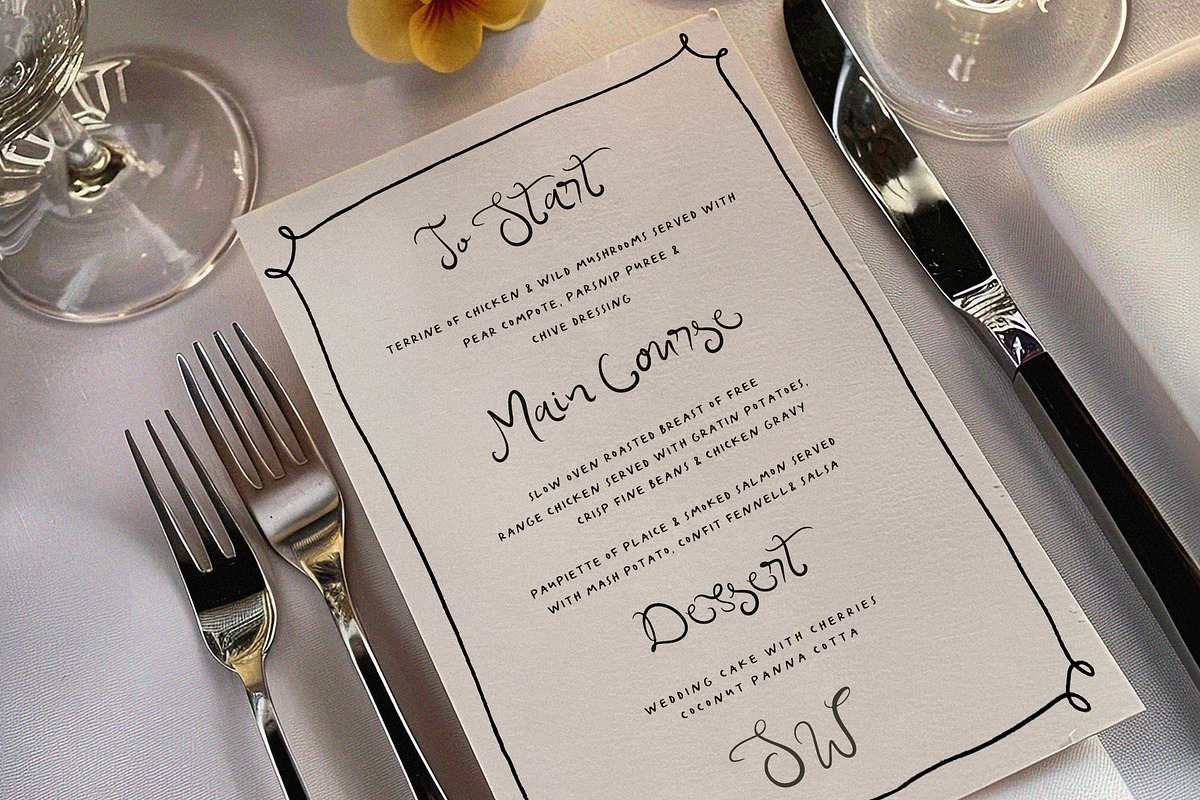 To Start
TERRINE OF CHICKEN & WILD MUSHROOMS SERVED WITH
PEAR COMPOTE, PARSNIP PUREE &
CHIVE DRESSING
Main Course
SLOW OVEN ROASTED BREAST OF FREE
RANGE CHICKEN SERVED WITH GRATIN POTATOES,
CRISP FINE BEANS & CHICKEN GRAVY
PAUPIETTE OF PLAICE & SMOKED SALMON SERVED
WITH MASH POTATO, CONFIT FENNELL& SALSA
Dessert
WEDDING CAKE WITH CHERRIES
COCONUT PANNA COTTA
SW